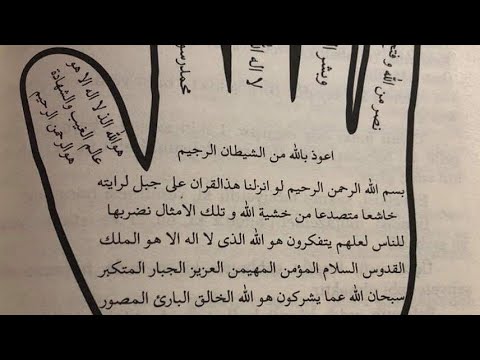 نصر من الله و فت
وبشر ا
لا اله ال
محمد رسو
هوالله الذ لا اله الا هو
عالم الغيب والشهادة
هوالرحمن الرحيم
اعوذ بالله من الشيطان الرجيم
بسم الله الرحمن الرحيم لو انزلنا هذالقران على جبل لرايته
خاشعا متصدعا من خشية الله و تلك الامثال نضربها
للناس لعلهم يتفكرون هو الله الذى لا اله الا هو الملك
القدوس السلام المؤمن المهيمن العزيز الجبار المتكبر
سبحان الله عما يشركون هو الله الخالق البارئ المصور